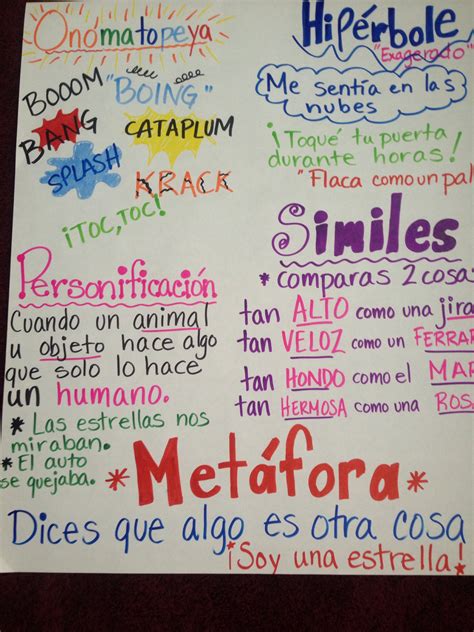 Onomatopeya
BOOOM
"BOING"
BANG
CATAPLUM
SPLASH
KRACK
¡TOC, TOC!
Hipérbole
"Exagerado"
Me sentía en las
nubes
¡Toqué tu puerta
durante horas!
"Flaca como un pal
Personificación
Cuando un animal
u objeto hace algo
que solo lo hace
un humano.
* Las estrellas nos
miraban.
* El auto
se quejaba.
Similes
* comparas 2 cosas
tan ALTO como una jira
tan VELOZ como un FERRAR
tan HONDO como el MAR
tan HERMOSA como una ROSA
* Metáfora *
Dices que algo es otra cosa
¡Soy una estrella!